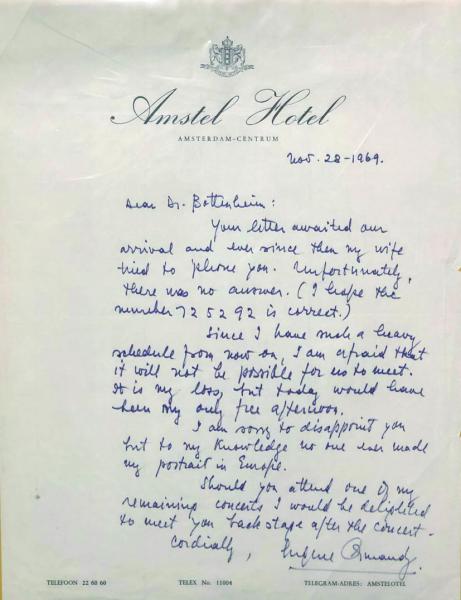 Amstel Hotel
AMSTERDAM-CENTRUM
Nov. 28-1969.
Dear Dr. Bottenheim:
Your letter awaited our
arrival and ever since then my wife
tried to 'phone you. Unfortunately,
there was no answer. (I hope the
number 725292 is correct.)
Since I have such a heavy
schedule from now on, I am afraid that
it will not be possible for us to meet.
It is my loss, but today would have
been my only free afternoon.
I am sorry to disappoint you
but to my knowledge no one ever made
my portrait in Europe.
Should you attend one of my
remaining concerts I would be delighted
to meet you backstage after the concert.
Cordially, Eugene Ormandy
TELEFOON 22 60 60 TELEX No. 11004 TELEGRAM-ADRES: AMSTELOTEL